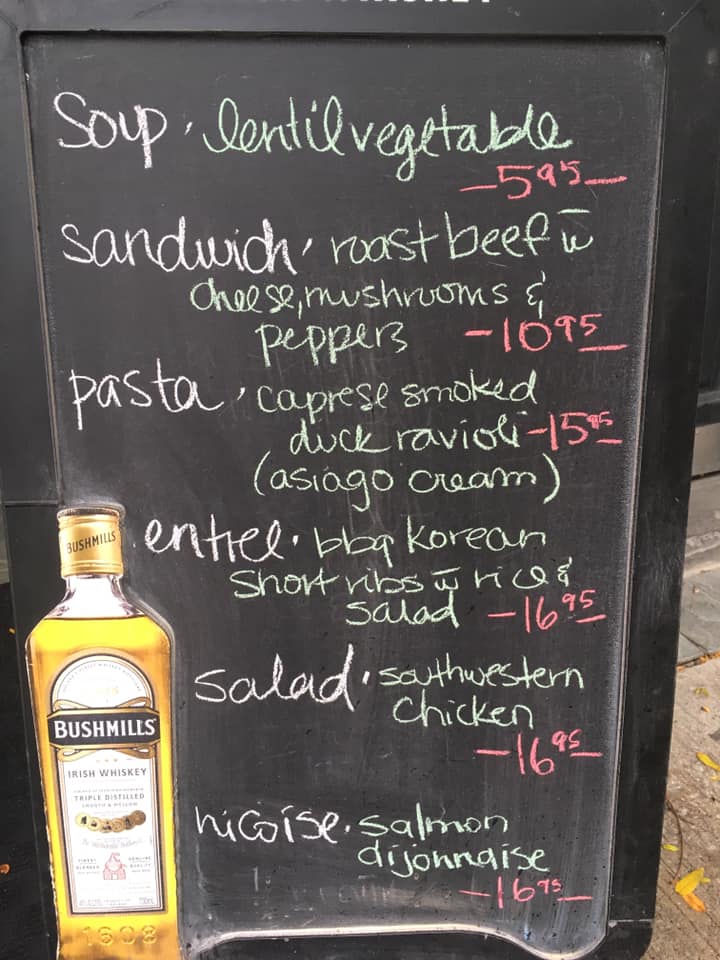 Soup · lentil vegetable
- 5.95 -
sandwich · roast beef w̄
cheese, mushrooms &
peppers - 10 95
pasta · caprese smoked
duck ravioli - 15 95
(asiago cream)
entree · bbq Korean
short ribs w̄ rice &
salad - 16 95
salad · southwestern
chicken
- 16 95
nicoise · salmon
dijonnaise
- 16 95
BUSHMILLS
BUSHMILLS
IRISH WHISKEY
TRIPLE DISTILLED
SMOOTH & MELLOW
1608